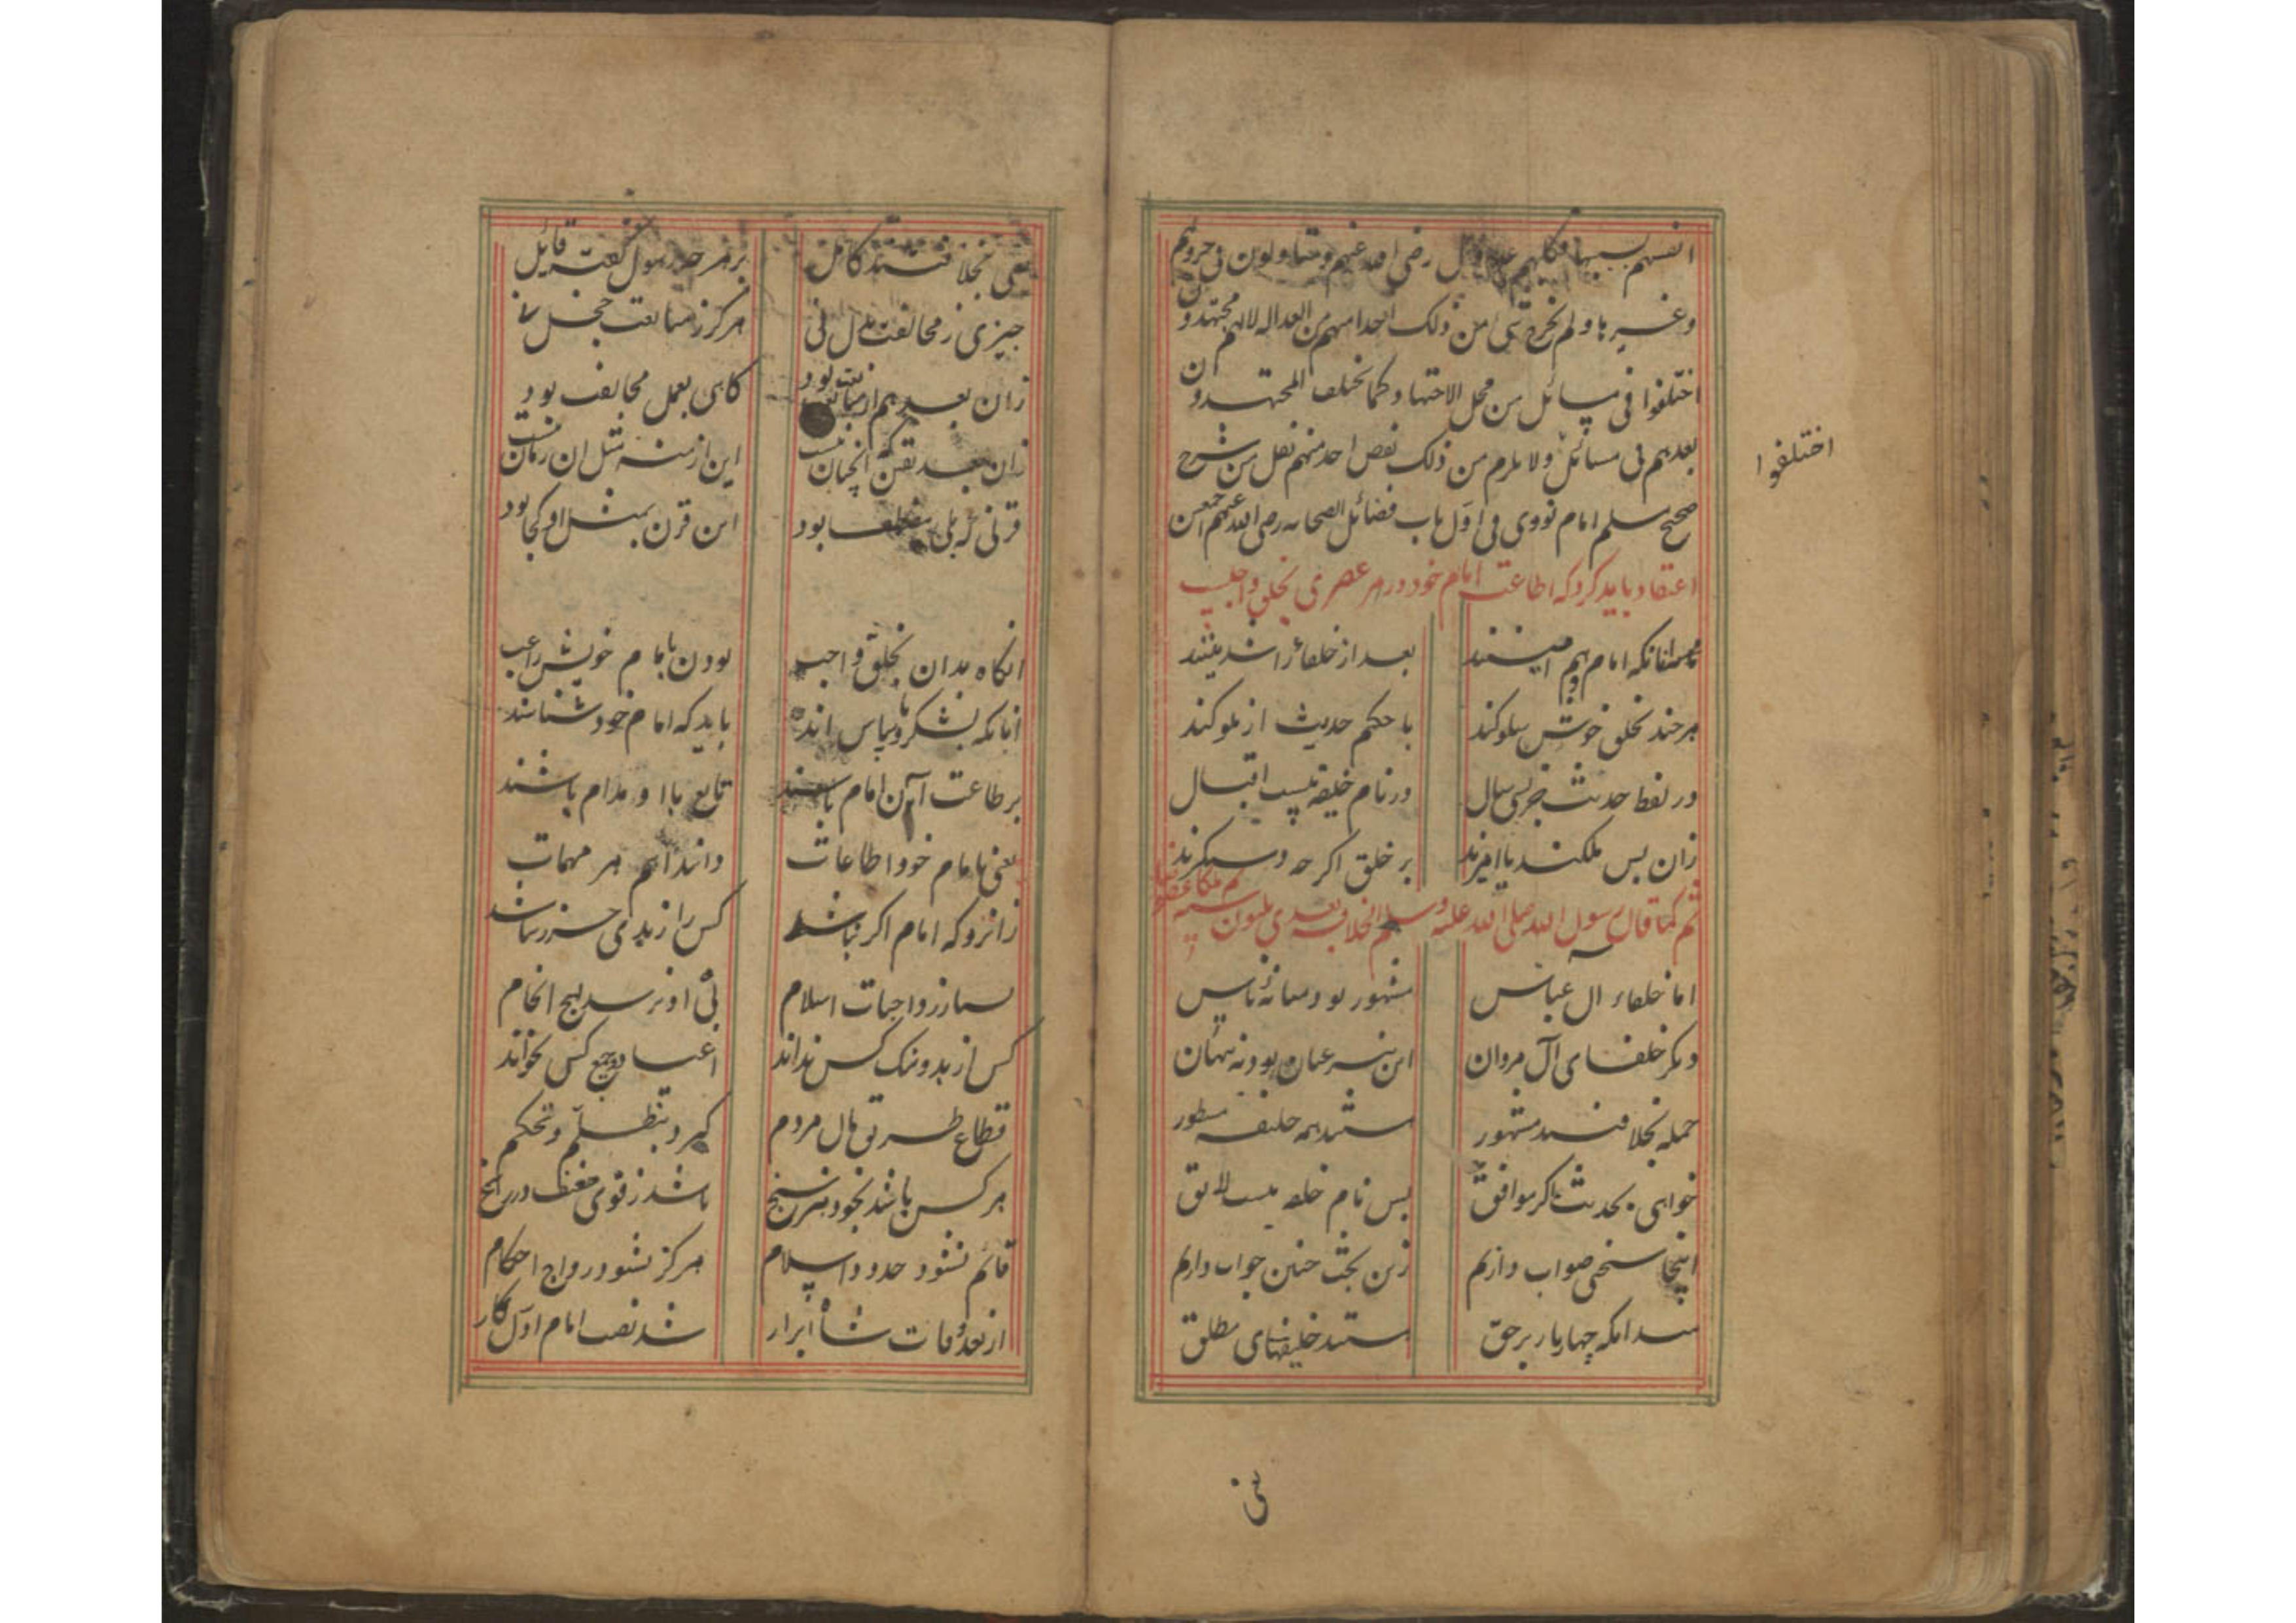 انفسهم بسببها وكلهم عدول رضى الله عنهم ومتاولون فى حروبهم
وغيرها ولم يخرج شئ من ذلك احدا منهم من العداله لانهم مجتهدون
اختلفوا فى مسائل من محل الاجتهاد كما يختلف المجتهدون
بعدهم فى مسائل ولا يلزم من ذلك نقص احد منهم نقل من شرح
صحيح مسلم امام نووى فى اول باب فضائل الصحابه رضى الله عنهم اجمعين
اختلفوا
اعتقاد بايد كرد كه اطاعت امام خود در هر عصرى بخلق واجب
انكه امام هم بعد از خلفاء راشدينند
هر چند بخلق خوش سلوكند با حكم حديث از ملوكند
در لفظ حديث در نام خليفه نيست اقبال
زان پس ملكند يا اميرند بر خلق اگر چه دستگيرند
كما قال رسول الله صلى الله عليه وسلم الخلافة بعدى ثلثون سنة
اما خلفاء آل عباس مشهور بود ميانۀ ناس
ديگر خلفاى آل مروان اين نيز عيان بود نه پنهان
جمله بخلافتند مشهور هستند همه خليفه مسطور
خواهى بحديث اگر موافق پس نام خلفه نيست لايق
اينجا سخنى صواب دارم زين بحث چنين جواب دارم
انكه چهار يار بر حق هستند خليفهاى مطلق
يعنى
يعنى بخلافتند كامل بر هر چه رسول گفته قايل
چيزى ز مخالفت هرگز ز متابعت بجز
زان بعد هم از متابعت بود گاهى بعمل مخالف بود
زان بعد يقين آنچنان نيست اين ازمنه مثل ان زمان نيست
قرنى كه بمصطفى بود اين قرن بمثل او كجا بود
انگاه بدان بخلق واجب بودن بامام خويش راغب
آنانكه بشكر و با سپاس اند بايد كه امام خود شناسند
بر طاعت آن امام باشند تابع با او مدام باشند
يعنى بامام خود اطاعات دانند اهم هر مهمات
زانرو كه امام اگر نباشد كس را ز بدى حذر نباشد
بسيار ز واجبات اسلام بى او نرسد بهيچ انجام
كس از بد و نيك كس نداند اعياد و جمع كس نخواند
قطاع طريق مال مردم گيرد بتظلم و تحكم
هر كس باشد بخود
قائم نشود حدود اسلام هرگز نشود رواج احكام
از بعد وفات شاه ابرار شد نصب امام اول كار